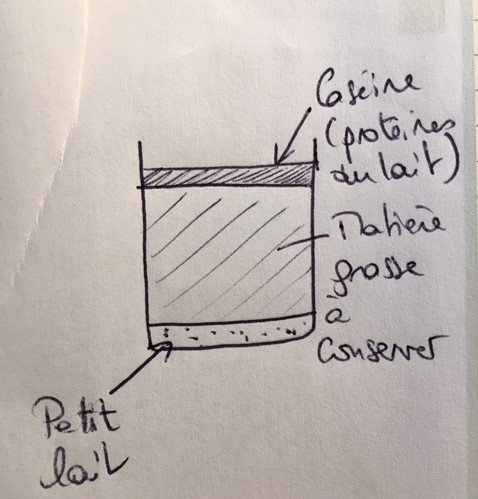 Caséine
(protéines
du lait)
Matière
grasse
à
conserver
Petit
lait